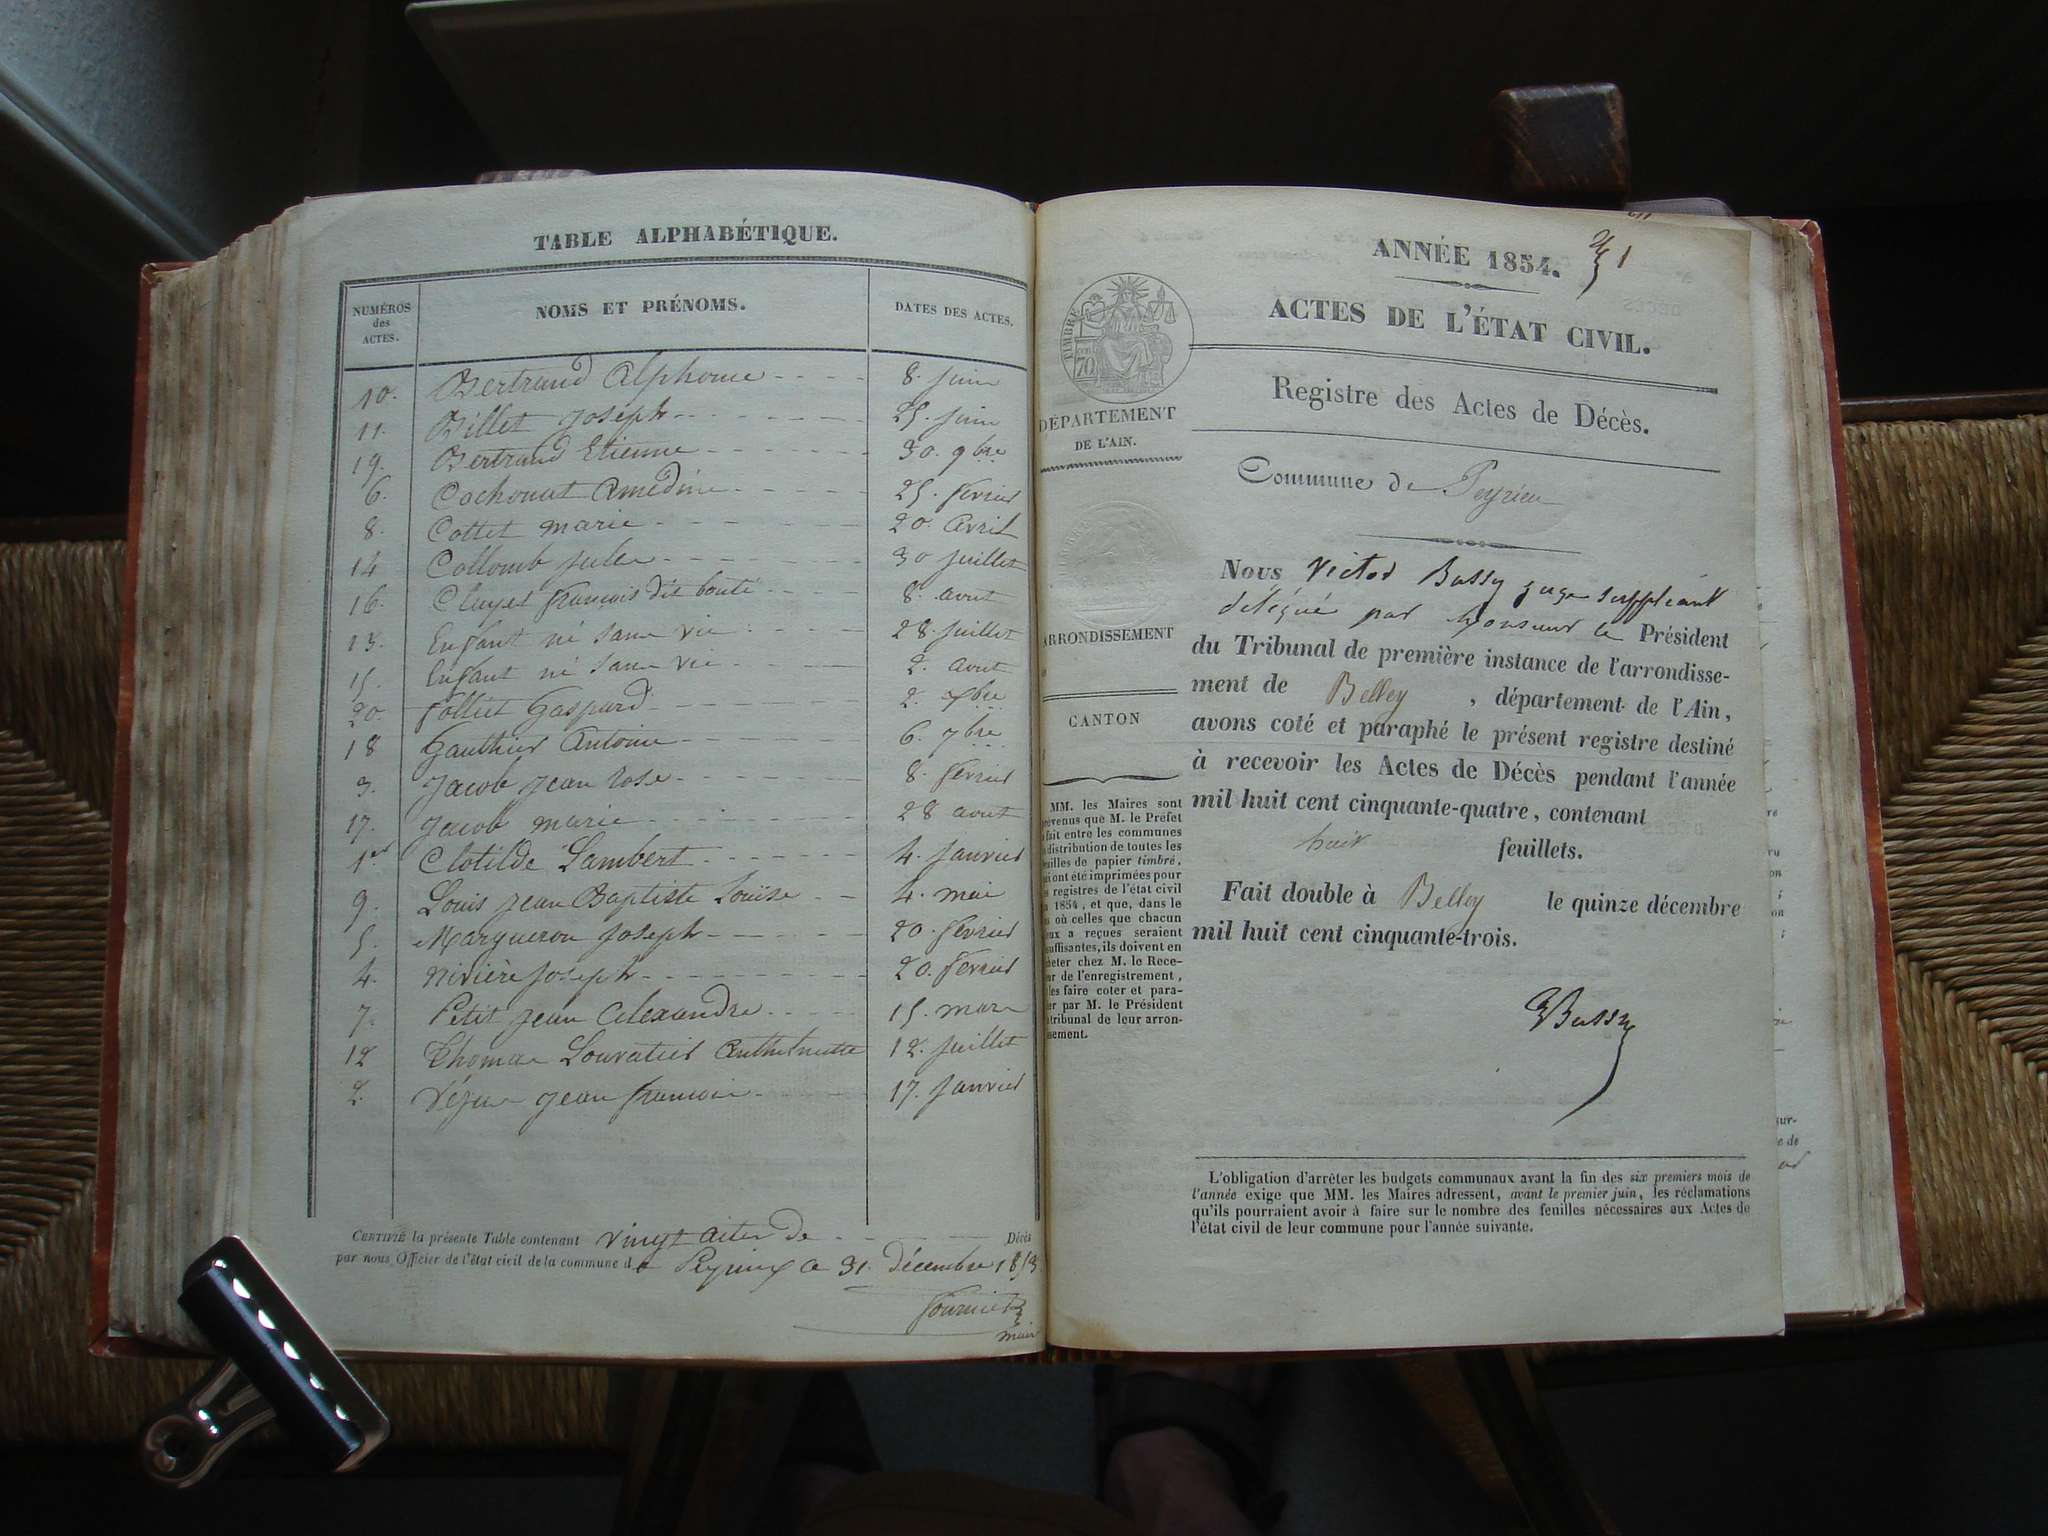 TABLE ALPHABÉTIQUE.
NUMÉROS
des
ACTES.
NOMS ET PRÉNOMS.
DATES DES ACTES.
10. Bertrand Alphonse 8. juin
11. Billet Joseph 25. juin
19. Bertrand Etienne 30. 9bre
6. 25. février
8. Cottet marie 20. Avril
14 Collomb 30 juillet
16. françois dit 8. aout
13. Enfant né sans vie 28. juillet
15. Enfant né sans vie 2. aout
20. Folliet Gaspard 2.
18 Gauthier Antoine 6. 7bre
3. Jacob jean rose 8. février
17. Jacob marie 28 aout
1er Clotilde Lambert 4. janvier
9. Louis jean Baptiste Louise 4. mai
5. Marqueron Joseph 20. février
4. nivière Joseph 20. février
7. Petit jean Alexandre 15. mars
12 Thomas 12. juillet
2. jean françois 17. janvier
CERTIFIÉ la présente Table contenant vingt actes de Décès
par nous Officier de l'état civil de la commune de Peyrieux ce 31. décembre 1853
Fournier
maire
ANNÉE 1854.
1
ACTES DE L'ÉTAT CIVIL.
Registre des Actes de Décès.
Commune de Peyrieu
TIMBRE
70
DÉPARTEMENT
DE L'AIN.
ARRONDISSEMENT
CANTON
MM. les Maires sont
prévenus que M. le Préfet
fait entre les communes
distribution de toutes les
feuilles de papier timbré,
ont été imprimées pour
registres de l'état civil
1854, et que, dans le
où celles que chacun
eux a reçues seraient
suffisantes, ils doivent en
acheter chez M. le Rece-
de l'enregistrement,
les faire coter et para-
par M. le Président
tribunal de leur arron-
Nous Victor Bussy juge suppléant
délégué par Monsieur le Président
du Tribunal de première instance de l'arrondisse-
ment de Belley, département de l'Ain,
avons coté et paraphé le présent registre destiné
à recevoir les Actes de Décès pendant l'année
mil huit cent cinquante-quatre, contenant
huit feuillets.
Fait double à Belley le quinze décembre
mil huit cent cinquante-trois.
Bussy
L'obligation d'arrêter les budgets communaux avant la fin des six premiers mois de
l'année exige que MM. les Maires adressent, avant le premier juin, les réclamations
qu'ils pourraient avoir à faire sur le nombre des feuilles nécessaires aux Actes de
l'état civil de leur commune pour l'année suivante.